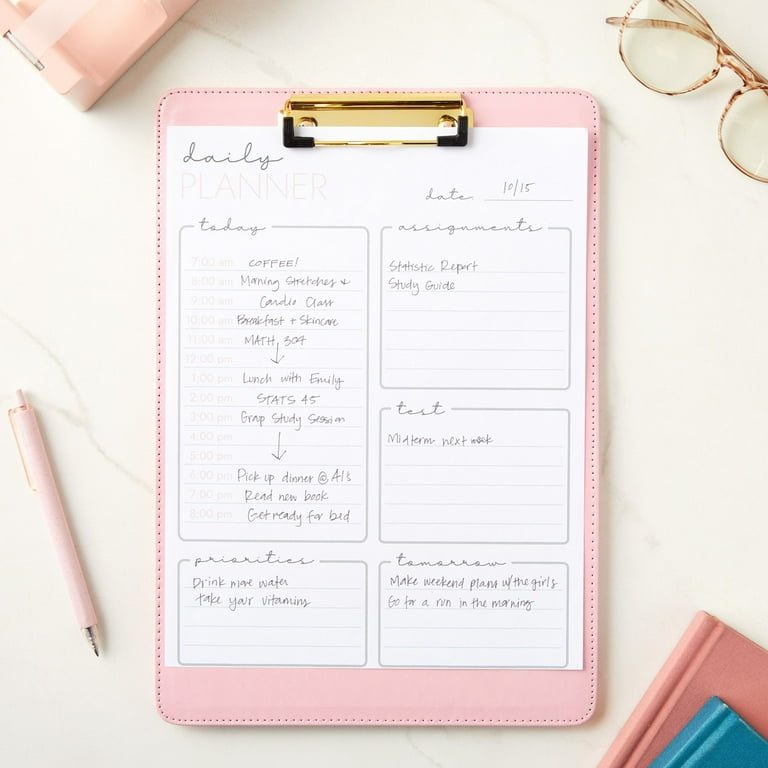 daily
PLANNER
date 10/15
today
7:00 am COFFEE!
8:00 am Morning Stretches &
9:00 am Cardio Class
10:00 am Breakfast + Skincare
11:00 am MATH 304
12:00 pm
1:00 pm Lunch with Emily
2:00 pm STATS 45
3:00 pm Group Study Session
4:00 pm
5:00 pm
6:00 pm Pick up dinner @ Al's
7:00 pm Read new book
8:00 pm Get ready for bed
assignments
Statistic Report
Study Guide
test
Midterm next week
priorities
Drink more water
take your vitamins
tomorrow
Make weekend plans w/the girls
Go for a run in the morning